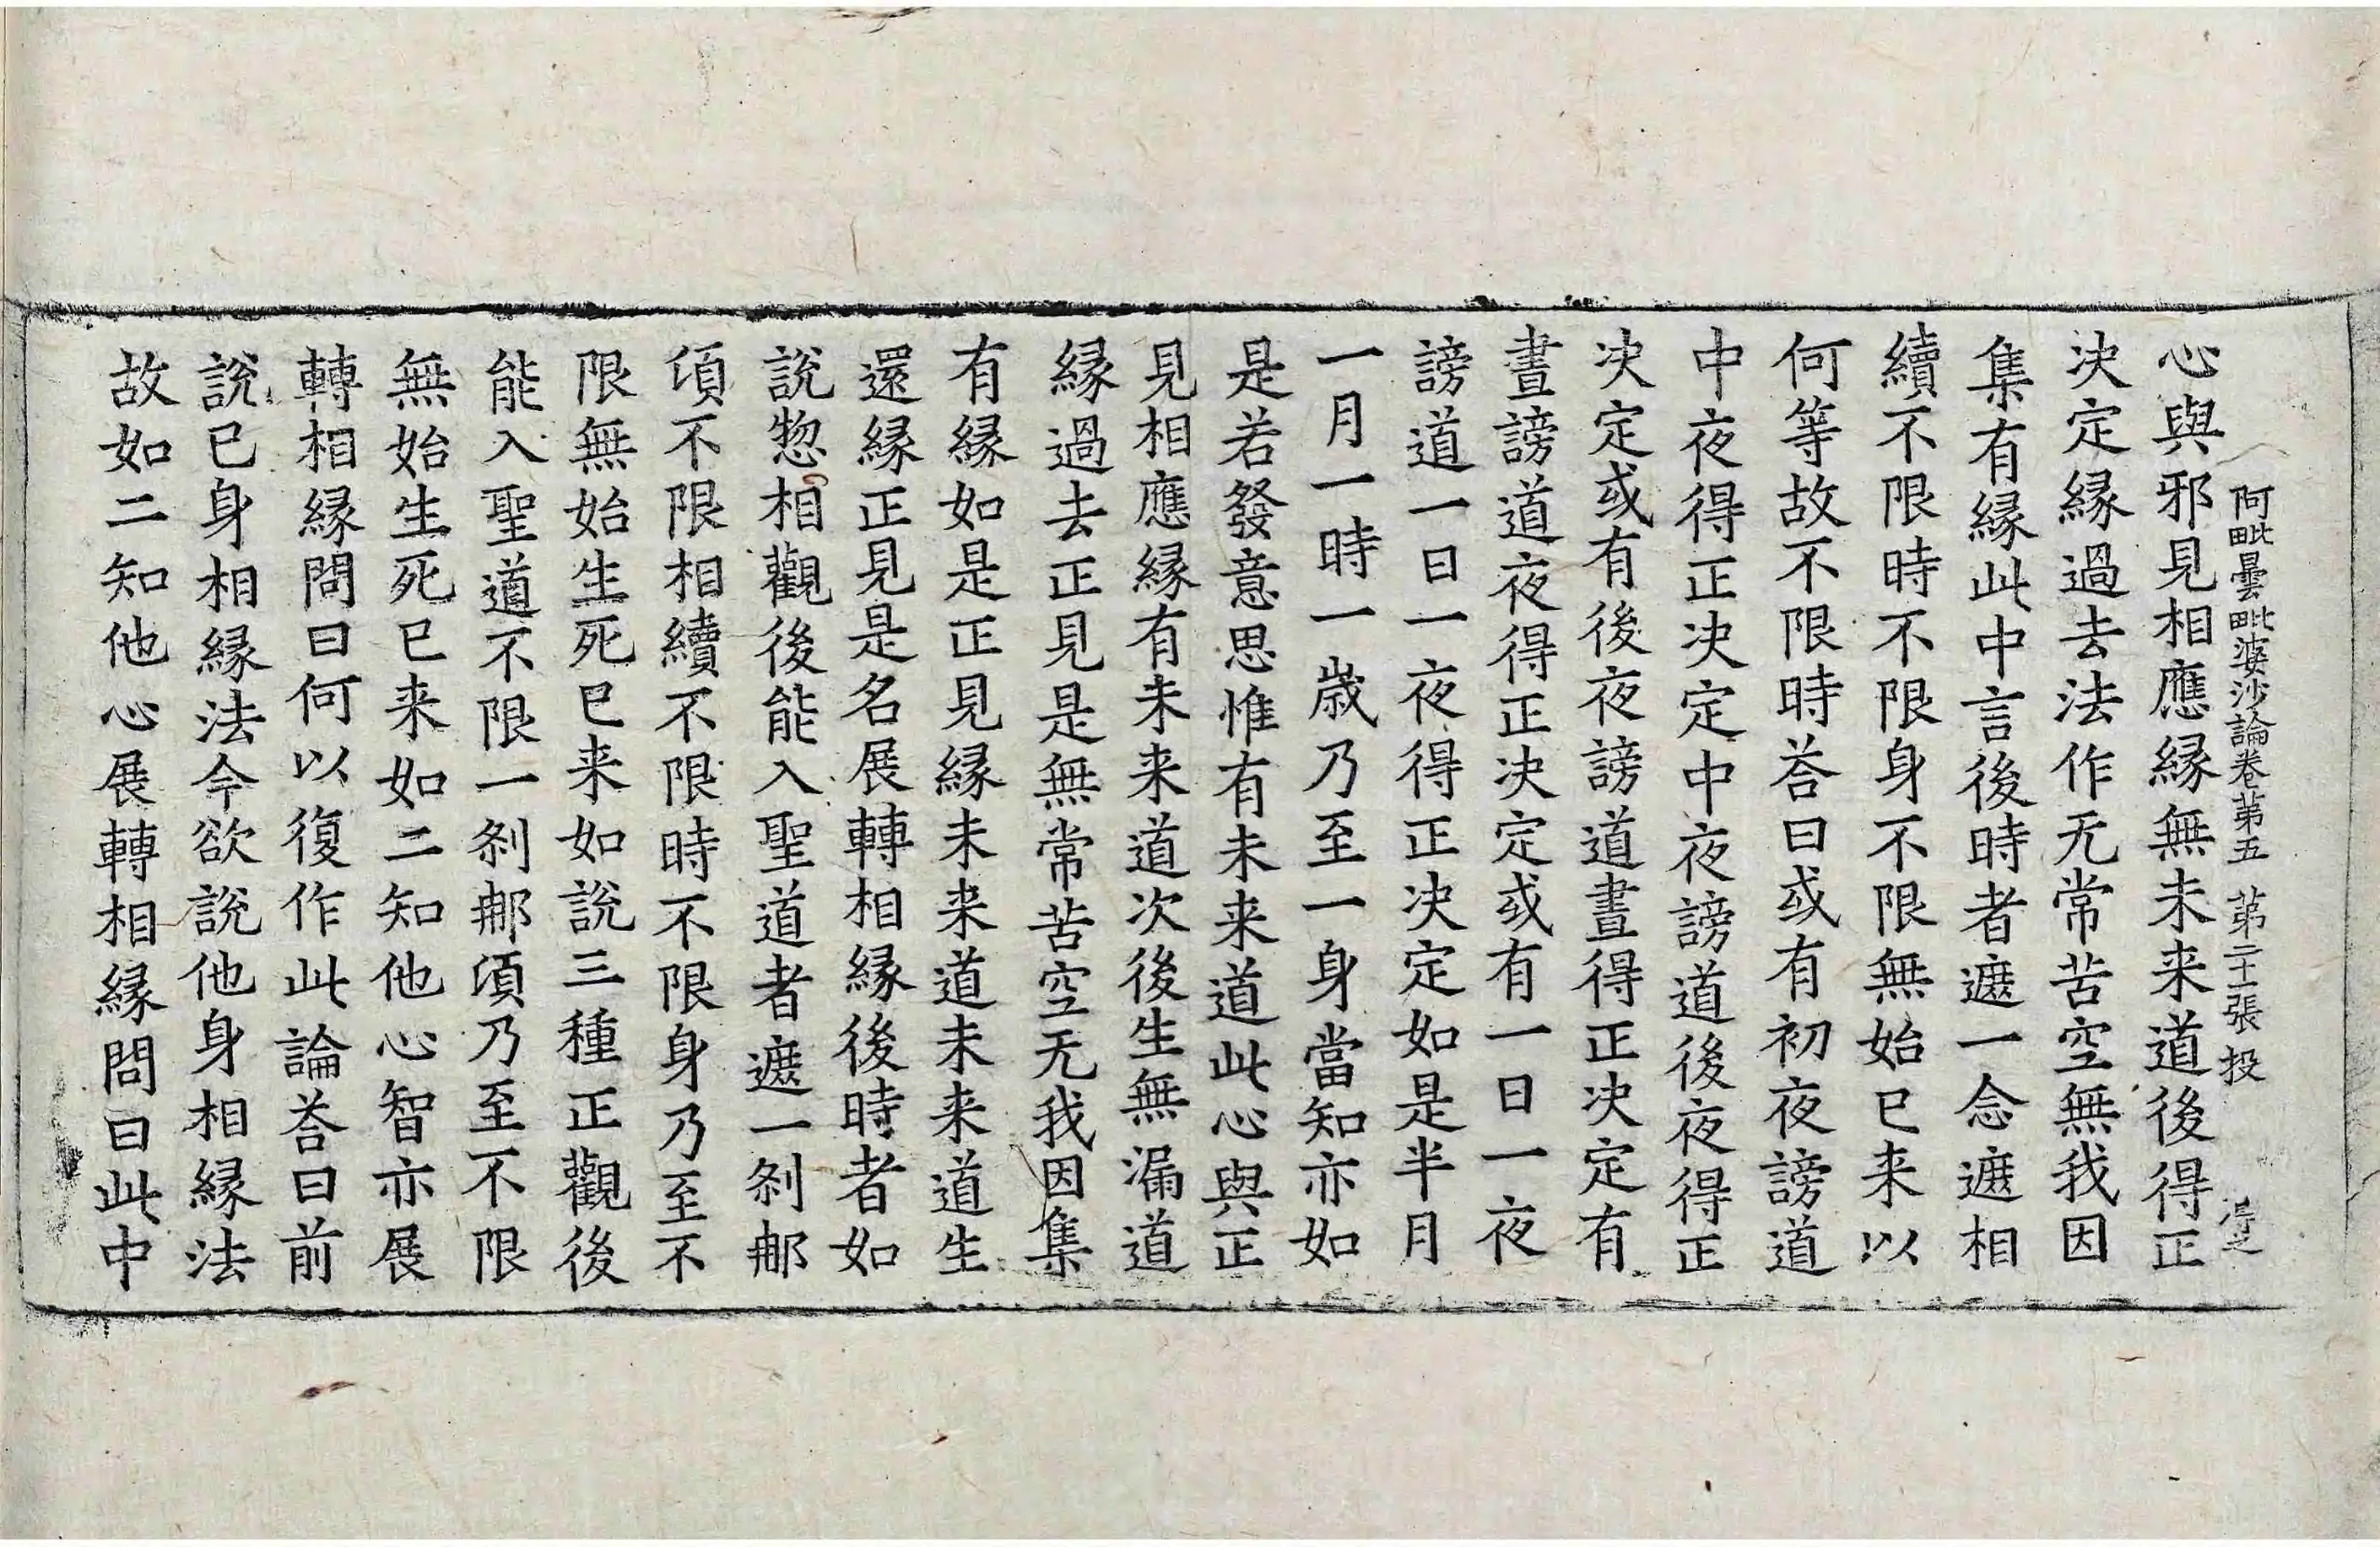 阿毗曇毗婆沙論卷第五 第二十張 投
心與邪見相應縁無未来道後得正
决定縁過去法作无常苦空無我因
集有縁此中言後時者遮一念遮相
續不限時不限身不限無始已来以
何等故不限時荅曰或有初夜謗道
中夜得正决定中夜謗道後夜得正
决定或有後夜謗道晝得正决定有
晝謗道夜得正决定或有一日一夜
謗道一日一夜得正决定如是半月
一月一時一歲乃至一身當知亦如
是若發意思惟有未来道此心與正
見相應縁有未来道次後生無漏道
縁過去正見是無常苦空无我因集
有縁如是正見縁未来道未来道生
還縁正見是名展轉相縁後時者如
說惣相觀後能入聖道者遮一剎那
頃不限相續不限時不限身乃至不
限無始生死已来如說三種正觀後
能入聖道不限一剎那頃乃至不限
無始生死已来如二知他心智亦展
轉相縁問曰何以復作此論荅曰前
說已身相縁法今欲說他身相縁法
故如二知他心展轉相縁問曰此中